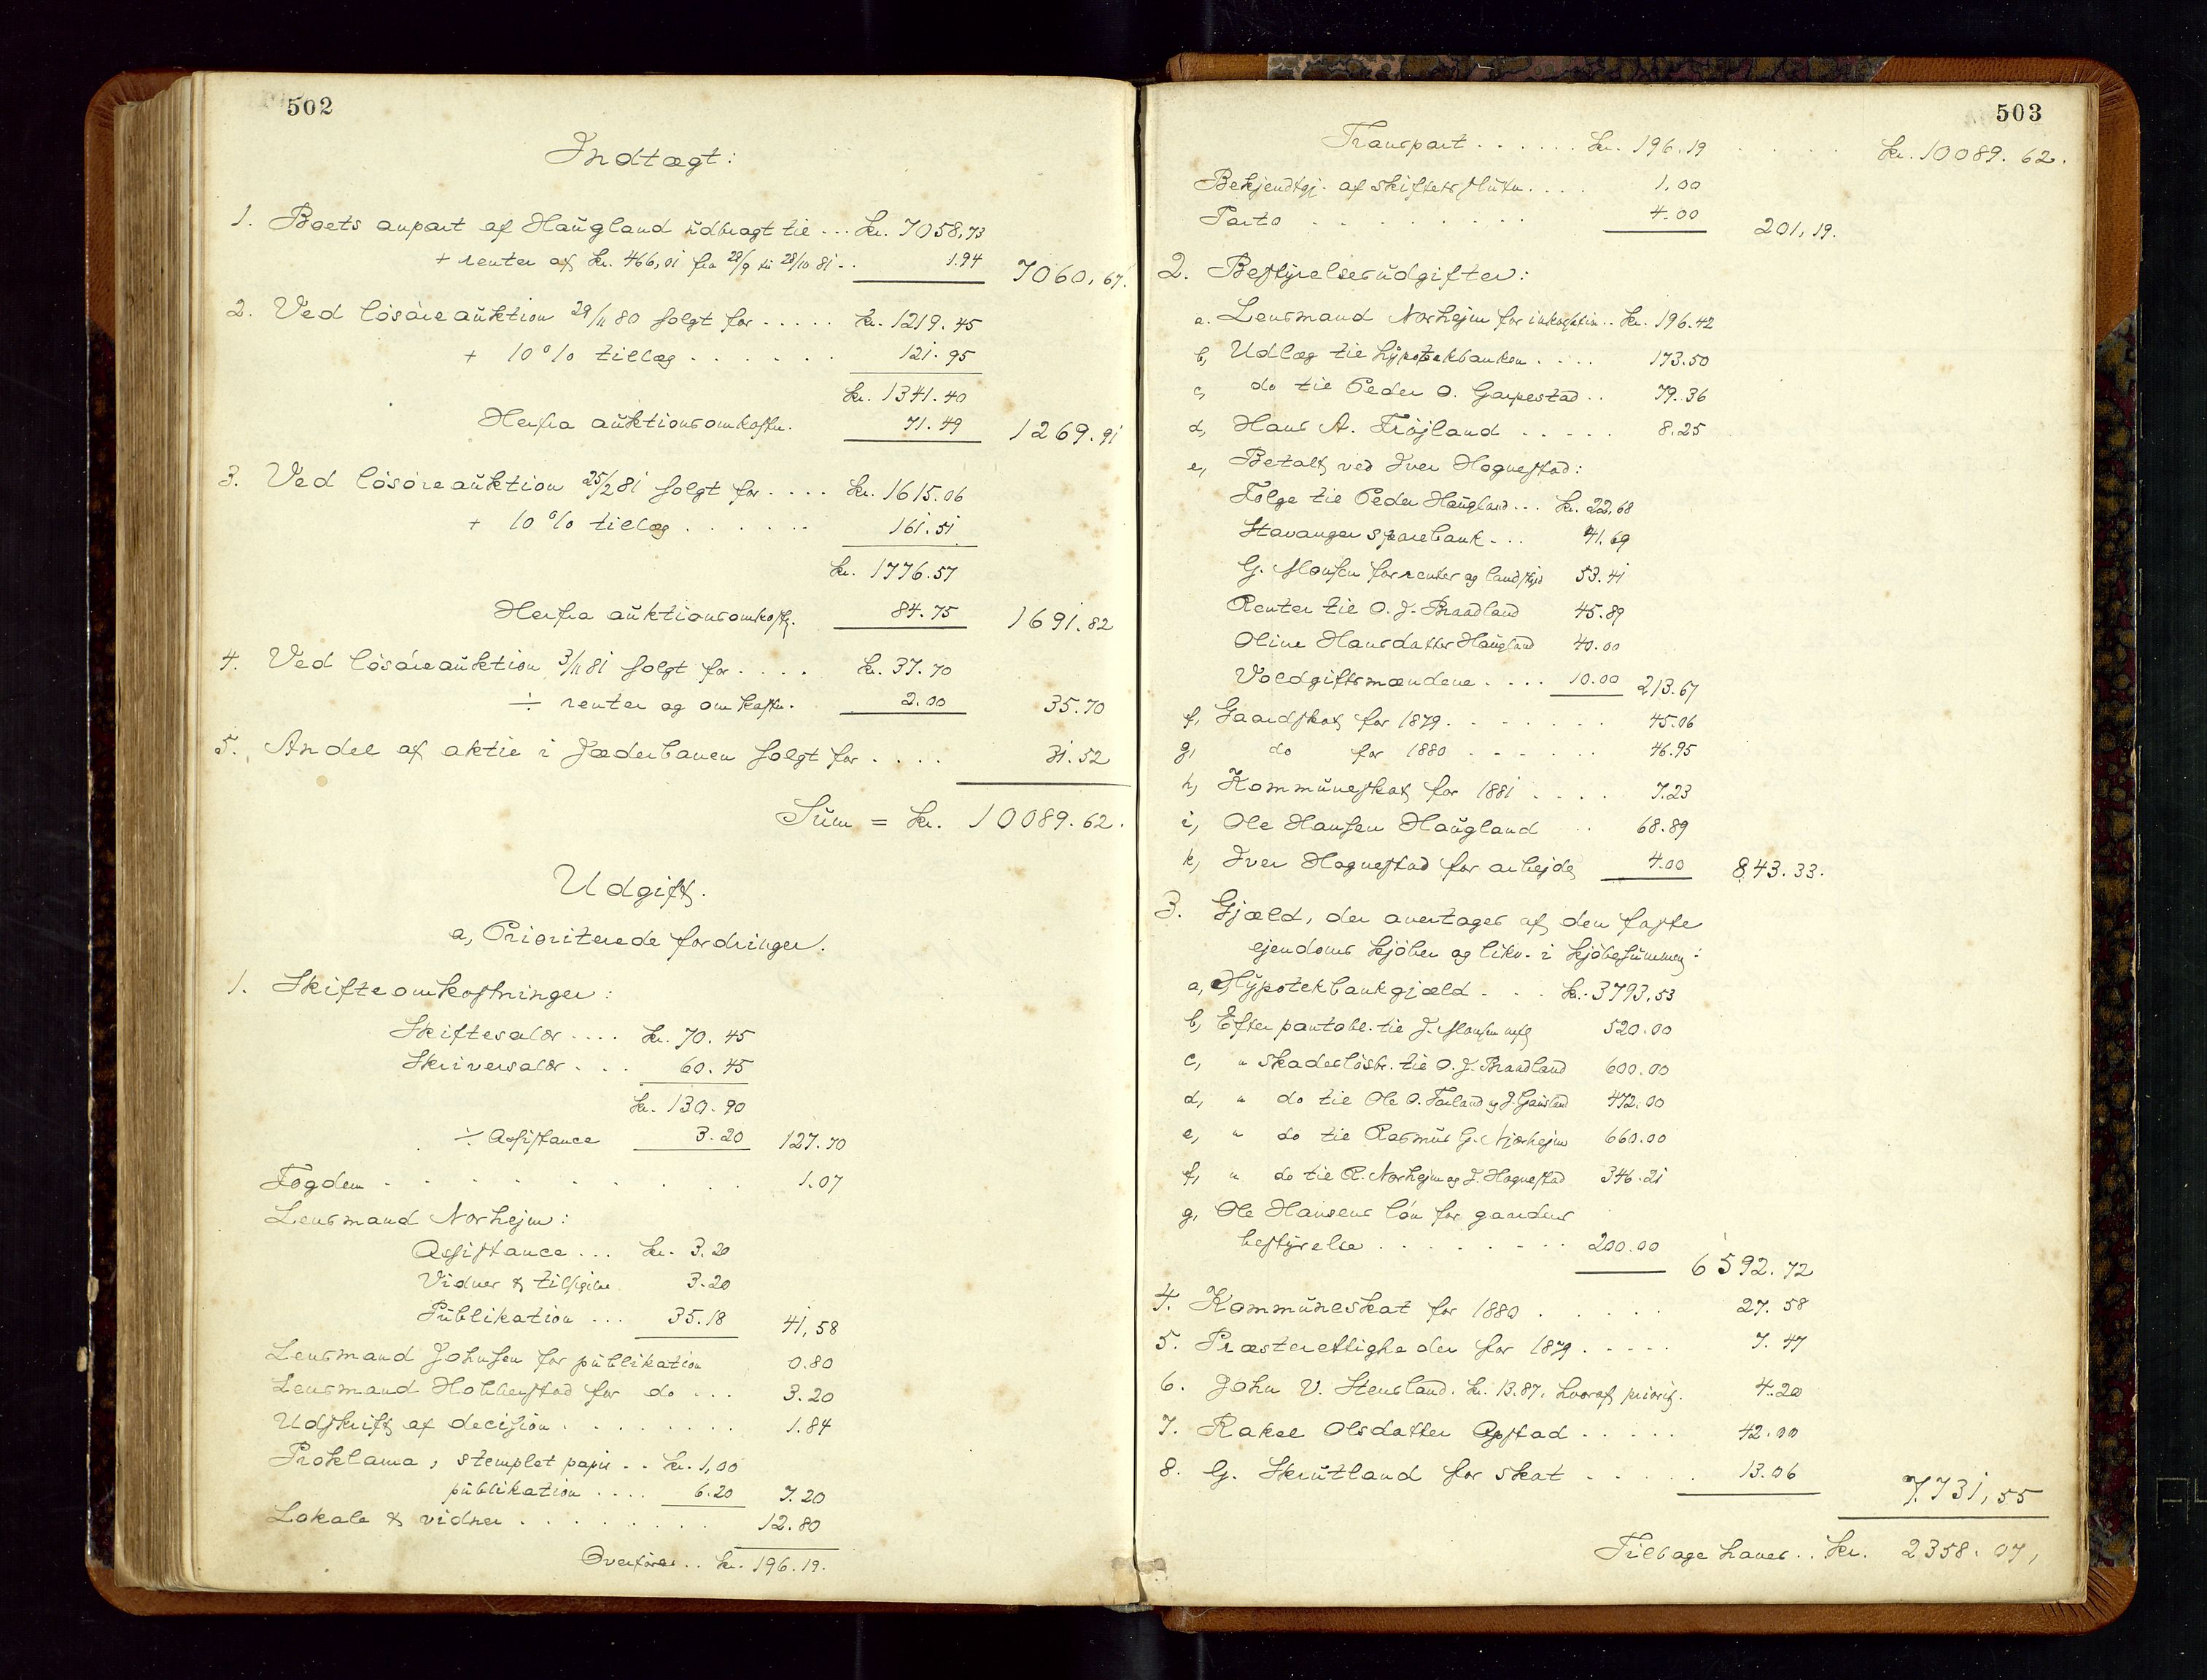 502
Indtægt:
1. Boets anpart af Haugland udbragt til ... kr. 7058,73
+ renter af kr. 466,01 fra 28/9 til 28/10 81 .. 1.94 7060,67.
2. Ved løsøreauktion 29/11 80 solgt for ..... kr. 1219.45
+ 10 % tillæg ...... 121.95
kr. 1341.40
Herfra auktionsomkostn. 71.49 1269.91
3. Ved løsøreauktion 25/2 81 solgt for .... kr. 1615.06
+ 10 % tillæg ...... 161.51
kr. 1776.57
Herfra auktionsomkostn. 84.75 1691.82
4. Ved løsøreauktion 3/11 81 solgt for .... kr. 37.70
÷ renter og omkostn. 2.00 35.70
5. Andel af aktie i Jæderbanen solgt for .... 31.52
Sum = kr. 10089.62.
Udgift.
a, Prioriterede fordringer.
1. Skifteomkostninger:
Skiftesalær .... kr. 70.45
Skriversalær ... 60.45
kr. 130.90
÷ Assistance 3.20 127.70
Fogden ......... 1.07
Lensmand Norhejm:
Assistance ... kr. 3.20
Vidner & tilsigelse 3.20
Publikation ... 35.18 41,58
Lensmand Johnsen for publikation 0.80
Lensmand Hobberstad for do ... 3.20
Udskrift af decision ....... 1.84
Proklama, stemplet papir .. kr. 1,00
publikation .... 6.20 7.20
Lokale & vidner ........ 12.80
Overføres .. kr. 196.19.
503
Transport ...... kr. 196.19 .... kr. 10089.62.
Bekjendtgj. af skiftets slutn. ... 1.00
Porto ......... 4.00 201,19.
2. Bestyrelsesudgifter:
a. Lensmand Norhejm for inkassation .. kr. 196.42
b, Udlæg til hypotekbanken .... 173.50
c, do til Peder O. Garpestad .. 79.36
d, Hans A. Frøjland ..... 8.25
e, Betalt ved Iver Hognestad:
Følge til Peder Haugland ... kr. 22,68
Stavanger sparebank ... 41.69
G. Monsen for renter og landskyld 53.41
Renter til O. J. Braadland 45.89
Oline Hansdatter Haugland 40.00
Voldgiftsmændene .... 10.00 213.67
f, Gaardskat for 1879 ....... 45.06
g, do for 1880 ...... 46.95
h, Kommuneskat for 1881 .... 7.23
i, Ole Hansen Haugland .. 68.89
k, Iver Hognestad for arbejde 4.00 843.33.
3. Gjæld, der overtages af den faste
ejendoms kjøber og likv. i kjøbesummen:
a, Hypotekbankgjæld ... kr. 3793,53
b, Efter pantobl. til J. Monsen 520.00
c, " skadesløsbr. til O. J. Braadland 600.00
d, " do til Ole O. Førland og J. Gausland 472.00
e, " do til Rasmus G. Njærhejm 660.00
f, " do til R. Norhejm og J. Hognestad 346.21
g, Ole Hansens løn for gaardens
bestyrelse ........ 200.00 6592.72
4. Kommuneskat for 1880 ..... 27.58
5. Præsterettigheder for 1879 ..... 7.47
6. John V. Stensland. kr. 13.87, hvoraf priorit. 4.20
7. Rakel Olsdatter Opstad ..... 42.00
8. G. Skrutland for skat ..... 13.06 7731,55
Tilbage haves .. kr. 2358.07,